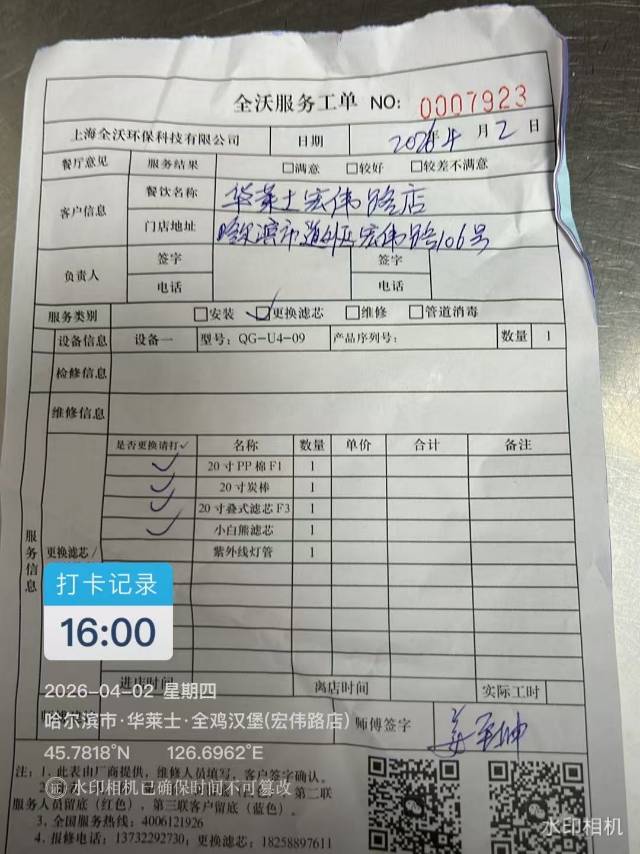 全沃服务工单 NO: 0007923
上海全沃环保科技有限公司 日期 2026年4月2日
餐厅意见 服务结果 □满意 □较好 □较差不满意
客户信息 餐饮名称 华莱士宏伟路店
门店地址 哈尔滨市道外区宏伟路106号
负责人 签字 签字
电话 电话
服务类别 □安装 ☑更换滤芯 □维修 □管道消毒
设备信息 设备一 型号: QG-U4-09 产品序列号: 数量 1
检修信息
维修信息
服务信息 更换滤芯/
是否更换请打✓ 名称 数量 单价 合计 备注
✓ 20寸PP棉F1 1
✓ 20寸炭棒 1
✓ 20寸叠式滤芯F3 1
✓ 小白熊滤芯 1
紫外线灯管 1
打卡记录
16:00
进店时间 离店时间 实际工时
2026-04-02 星期四
哈尔滨市·华莱士·全鸡汉堡(宏伟路店)
师傅签字
45.7818°N 126.6962°E
注: 1、此表由厂商提供，维修人员填写，客户签字确认。
第二联
水印相机已确保时间不可篡改
服务人员留底（红色），第三联客户留底（蓝色）。
3、全国服务热线: 4006121926
4、报修电话: 13732292730; 更换滤芯: 18258897611
水印相机